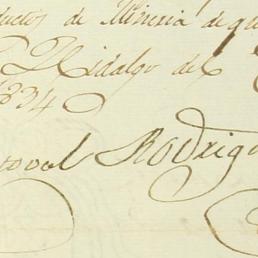 ductos de Mineria de qu
Hidalgo del
1834
toval Rodrig